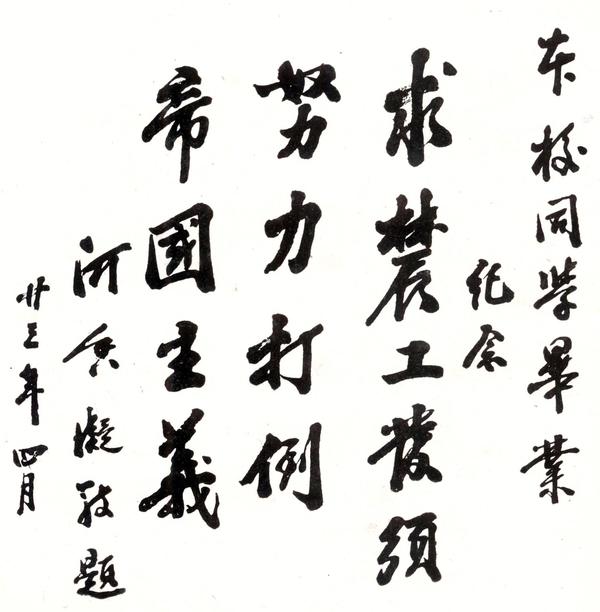 本校同學畢業
紀念
求農工發須
努力打倒
帝國主義
何香凝敬題
廿三年四月